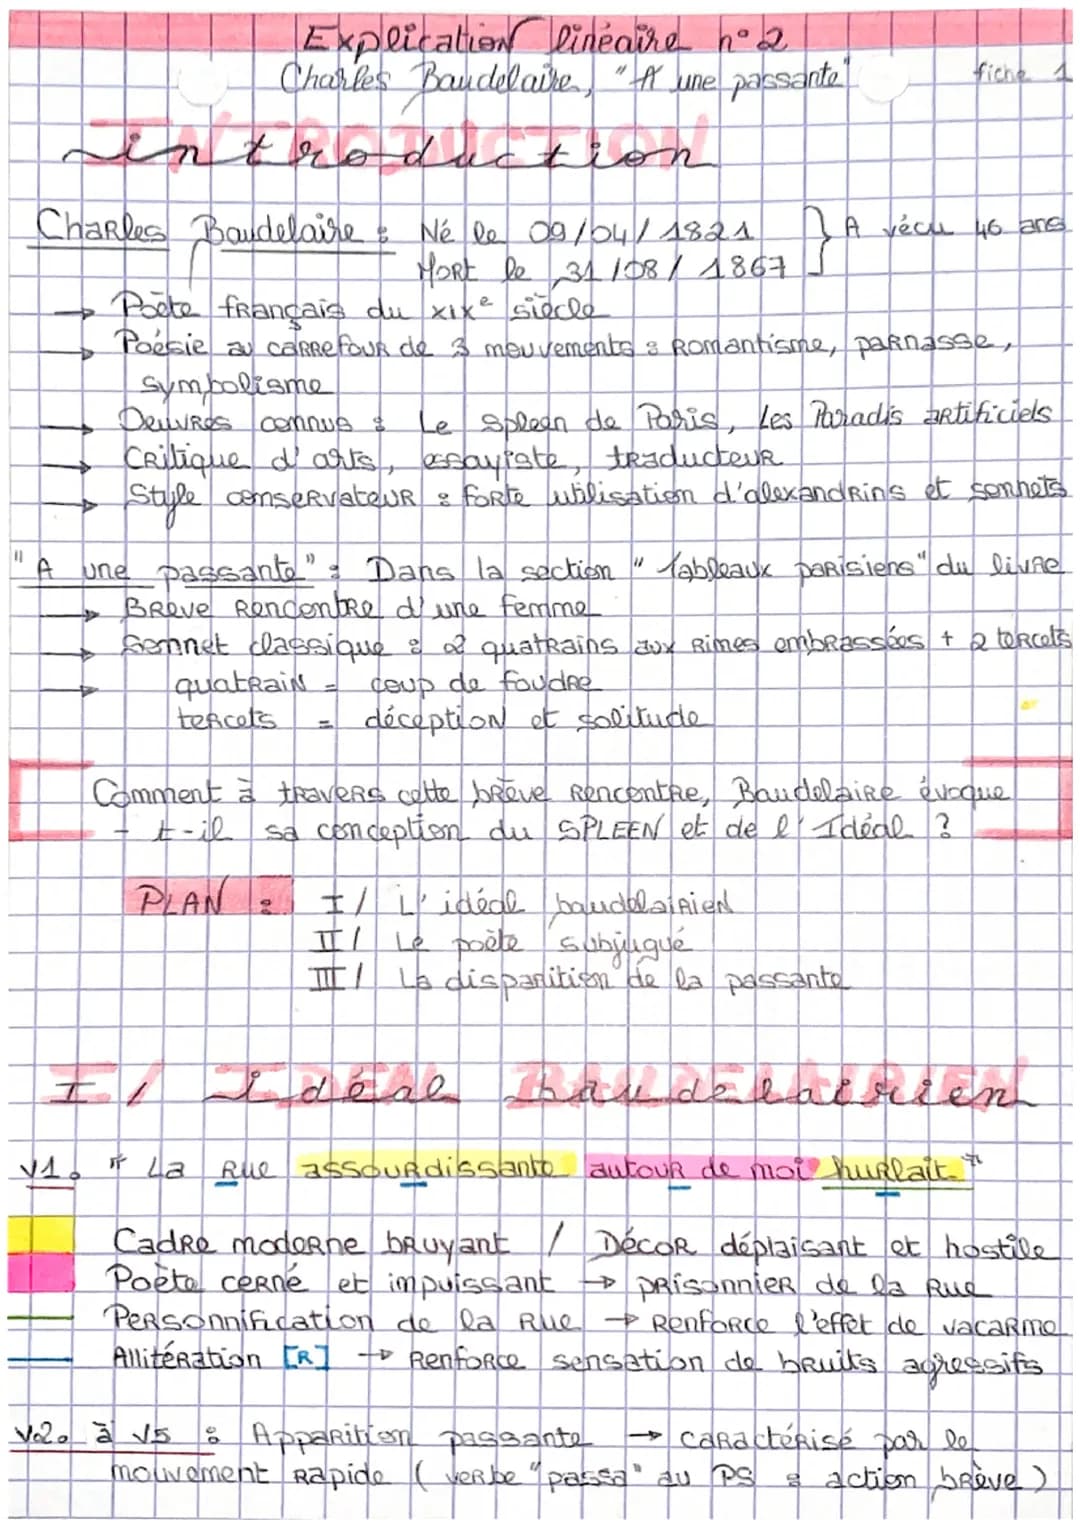 Explication linéaire n°2
Charles Baudelaire, "A une passante"
fiche 1
introduction
Charles Baudelaire : Né le 09/04/1821 } A vécu 46 ans
Mort le 31/08/1867
→ Poète français du XIXe siècle
→ Poésie au carrefour de 3 mouvements : Romantisme, parnasse,
symbolisme
→ Oeuvres connus : Le Spleen de Paris, Les Paradis artificiels
→ Critique d'arts, essayiste, traducteur
→ Style conservateur : forte utilisation d'alexandrins et sonnets
"A une passante" : Dans la section "Tableaux parisiens" du livre
→ Brève rencontre d'une femme
→ Sonnet classique : 2 quatrains aux rimes embrassées + 2 tercets
→ quatrain = coup de foudre
tercets = déception et solitude
Comment à travers cette brève rencontre, Baudelaire évoque
-t-il sa conception du SPLEEN et de l'Idéal ?
PLAN : I/ L'idéal baudelairien
II/ Le poète subjugué
III/ La disparition de la passante
I/ Idéal baudelairien
v1. " La Rue assourdissante autour de moi hurlait "
Cadre moderne bruyant / Décor déplaisant et hostile
Poète cerné et impuissant → prisonnier de la Rue
Personnification de la Rue → Renforce l'effet de vacarme
Allitération [R] → Renforce sensation de bruits agressifs
v2. à v5 : Apparition passante → caractérisé par le
mouvement rapide (verbe "passa" au PS : action brève)